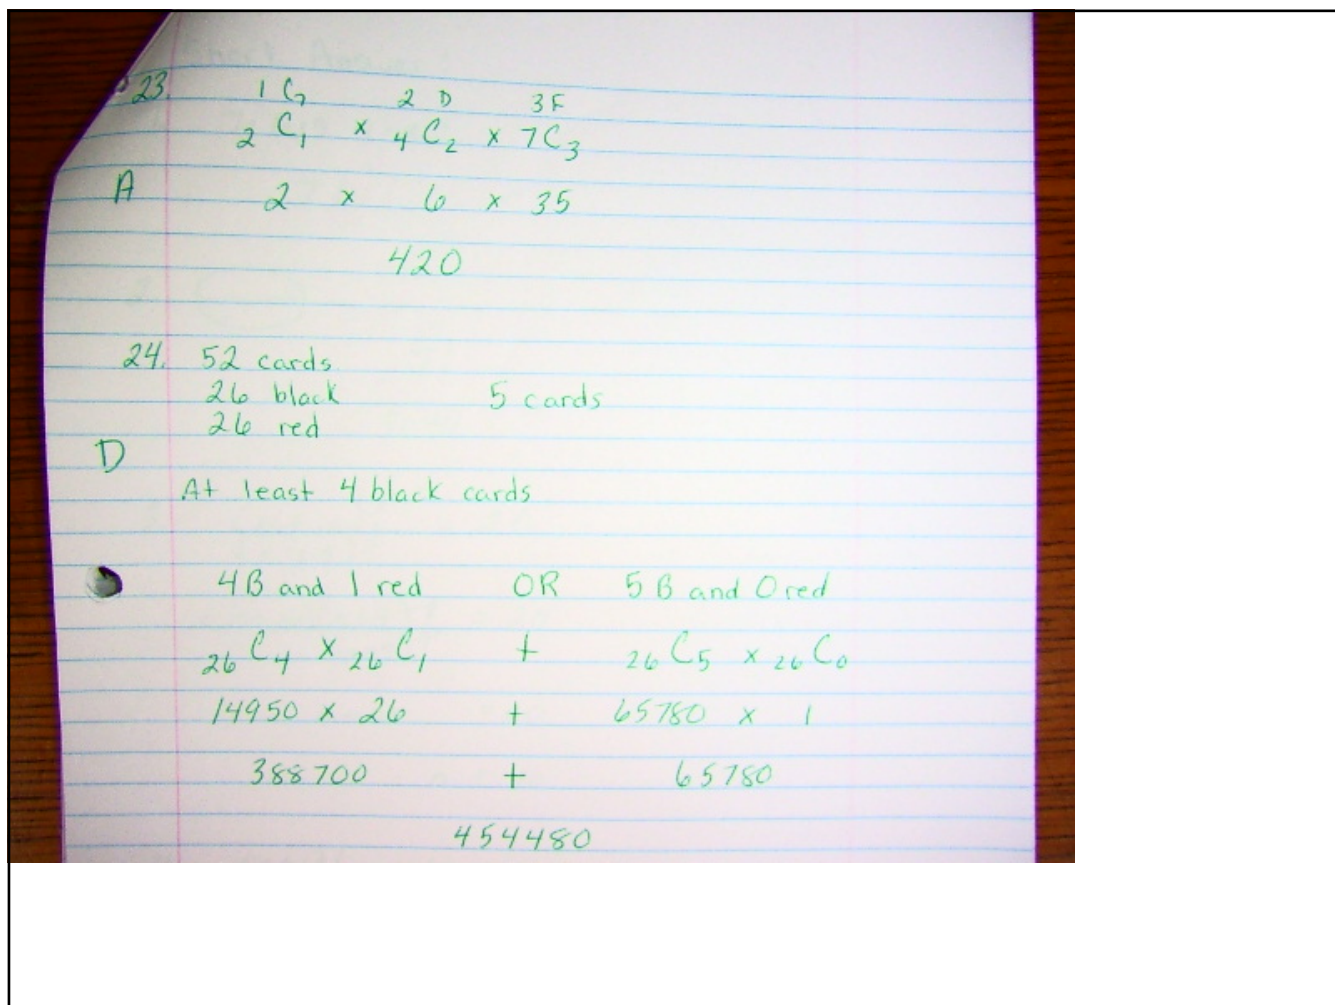 23. 1 G 2 D 3 F
2 C 1 x 4 C 2 x 7 C 3
A 2 x 6 x 35
420
24. 52 cards
26 black 5 cards
26 red
D
At least 4 black cards
4B and 1 red OR 5 B and 0 red
26 C 4 x 26 C 1 + 26 C 5 x 26 C 0
14950 x 26 + 65780 x 1
388700 + 65780
454480